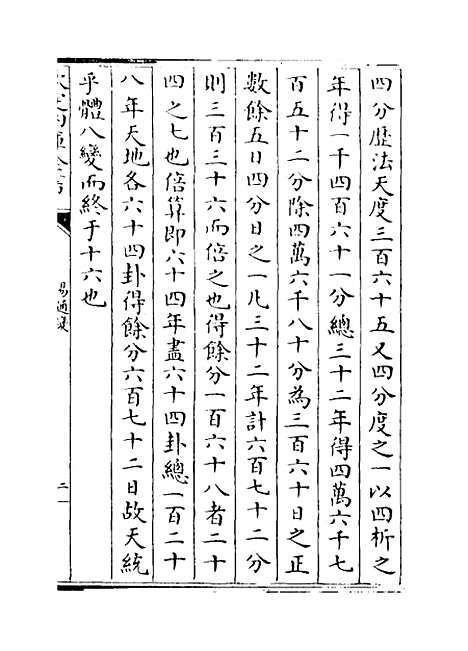 四分歴法天度三百六十五又四分度之一以四析之
年得一千四百六十一分總三十二年得四萬六千七
百五十二分除四萬六千八十分為三百六十日之正
數餘五日四分日之一凡三十二年計六百七十二分
則三百三十六而倍之也得餘分一百六十八者二十
四之七也倍算即六十四年盡六十四卦總一百二十
八年天地各六十四卦得餘分六百七十二日故天統
乎體八變而終于十六也
易通變